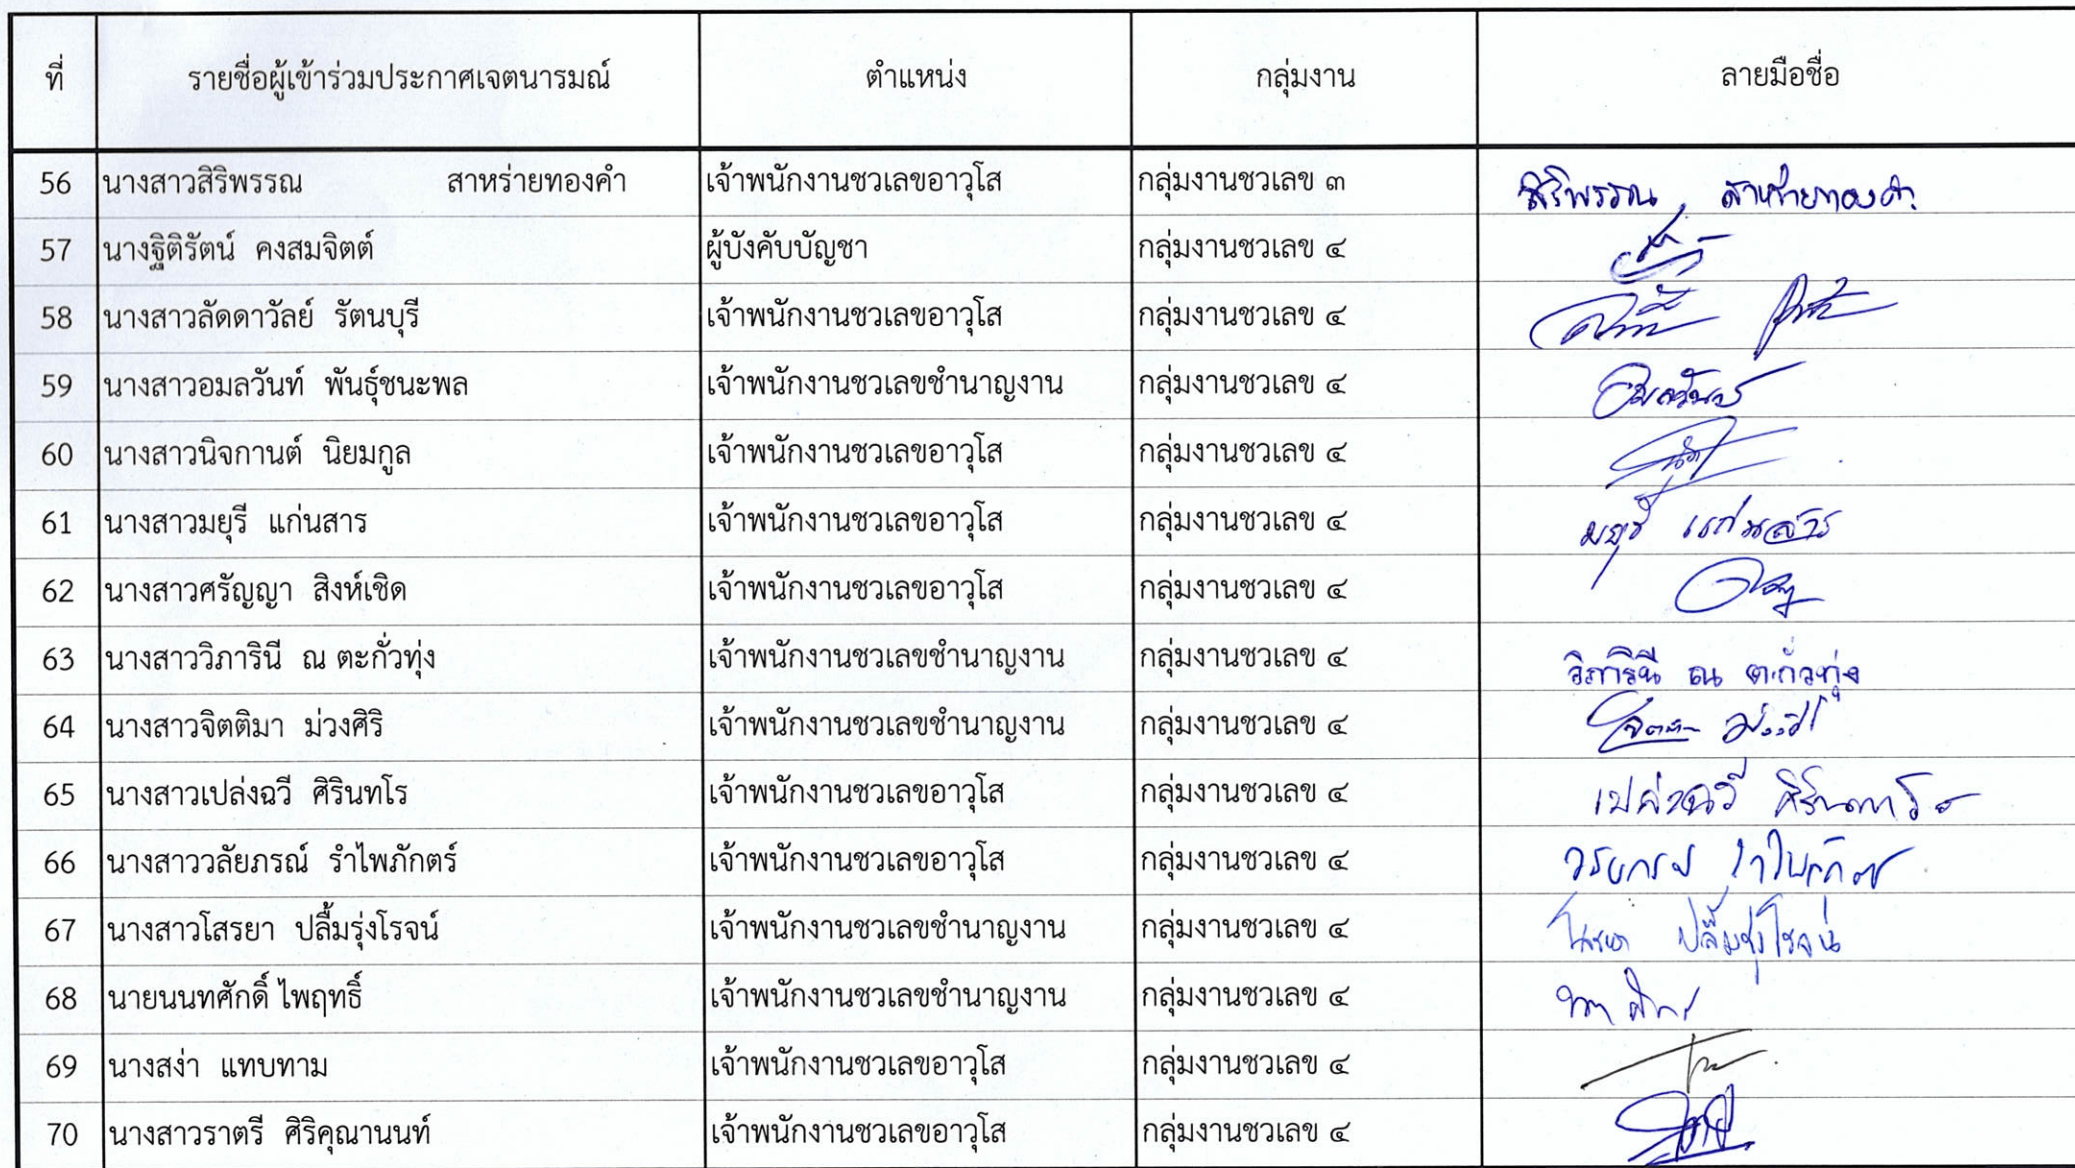 ที่ รายชื่อผู้เข้าร่วมประกาศเจตนารมณ์ ตำแหน่ง กลุ่มงาน ลายมือชื่อ
56 นางสาวสิริพรรณ สาหร่ายทองคำ เจ้าพนักงานชวเลขอาวุโส กลุ่มงานชวเลข ๓ สิริพรรณ สาหร่ายทองคำ
57 นางฐิติรัตน์ คงสมจิตต์ ผู้บังคับบัญชา กลุ่มงานชวเลข ๔
58 นางสาวลัดดาวัลย์ รัตนบุรี เจ้าพนักงานชวเลขอาวุโส กลุ่มงานชวเลข ๔
59 นางสาวอมลวันท์ พันธุ์ชนะพล เจ้าพนักงานชวเลขชำนาญงาน กลุ่มงานชวเลข ๔ อมลวันท์
60 นางสาวนิจกานต์ นิยมกูล เจ้าพนักงานชวเลขอาวุโส กลุ่มงานชวเลข ๔
61 นางสาวมยุรี แก่นสาร เจ้าพนักงานชวเลขอาวุโส กลุ่มงานชวเลข ๔ มยุรี แก่นสาร
62 นางสาวศรัญญา สิงห์เชิด เจ้าพนักงานชวเลขอาวุโส กลุ่มงานชวเลข ๔
63 นางสาววิภารินี ณ ตะกั่วทุ่ง เจ้าพนักงานชวเลขชำนาญงาน กลุ่มงานชวเลข ๔ วิภารินี ณ ตะกั่วทุ่ง
64 นางสาวจิตติมา ม่วงศิริ เจ้าพนักงานชวเลขชำนาญงาน กลุ่มงานชวเลข ๔
65 นางสาวเปล่งฉวี ศิรินทโร เจ้าพนักงานชวเลขอาวุโส กลุ่มงานชวเลข ๔ เปล่งฉวี ศิรินทโร
66 นางสาววลัยภรณ์ รำไพภักตร์ เจ้าพนักงานชวเลขอาวุโส กลุ่มงานชวเลข ๔
67 นางสาวโสรยา ปลื้มรุ่งโรจน์ เจ้าพนักงานชวเลขชำนาญงาน กลุ่มงานชวเลข ๔ โสรยา ปลื้มรุ่งโรจน์
68 นายนนทศักดิ์ ไพฤทธิ์ เจ้าพนักงานชวเลขชำนาญงาน กลุ่มงานชวเลข ๔
69 นางสง่า แทบทาม เจ้าพนักงานชวเลขอาวุโส กลุ่มงานชวเลข ๔
70 นางสาวราตรี ศิริคุณานนท์ เจ้าพนักงานชวเลขอาวุโส กลุ่มงานชวเลข ๔